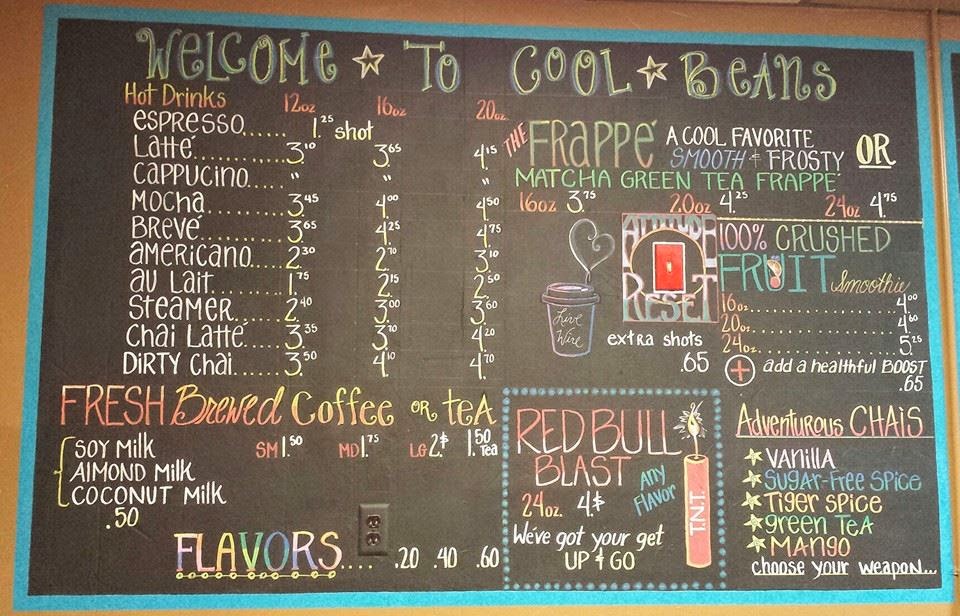 WELCOME TO COOL BEANS
Hot Drinks 12oz 16oz 20oz
espresso...... 1.25 shot
Latté 3.10 3.65 4.15
CAPPUCINO..... " " "
Mocha 3.45 4.00 4.50
Brevé 3.65 4.25 4.75
americano..... 2.30 2.70 3.10
au Lait 1.75 2.15 2.50
Steamer 2.40 3.00 3.60
Chai Latté 3.35 3.70 4.20
DIRTY Chai 3.50 4.10 4.70
FRESH Brewed Coffee OR teA
SM 1.50 MD 1.75 LG 2.$ 1.50 Tea
SOY Milk
AlMOND Milk
COCONUT Milk
.50
FLAVORS.... .20 .40 .60
THE FRAPPÉ A COOL FAVORITE
SMOOTH & FROSTY OR
MATCHA GREEN TEA FRAPPÉ
16oz 3.75 20oz 4.25 24oz 4.75
Live
Wire
ATTITUDE
RESET
extra shots
.65
100% CRUSHED
FRUIT Smoothie
16oz 4.00
20oz 4.60
24oz 5.25
+ add a healthful BOOST
.65
RED BULL
BLAST
24oz. 4.$ ANY FLAVOR
We've got your get
UP & GO
T.N.T.
Adventurous CHAIS
VANillA
SUGAR-FREE SPICE
TIGER SPICE
green TeA
MANGO
choose your weapon...